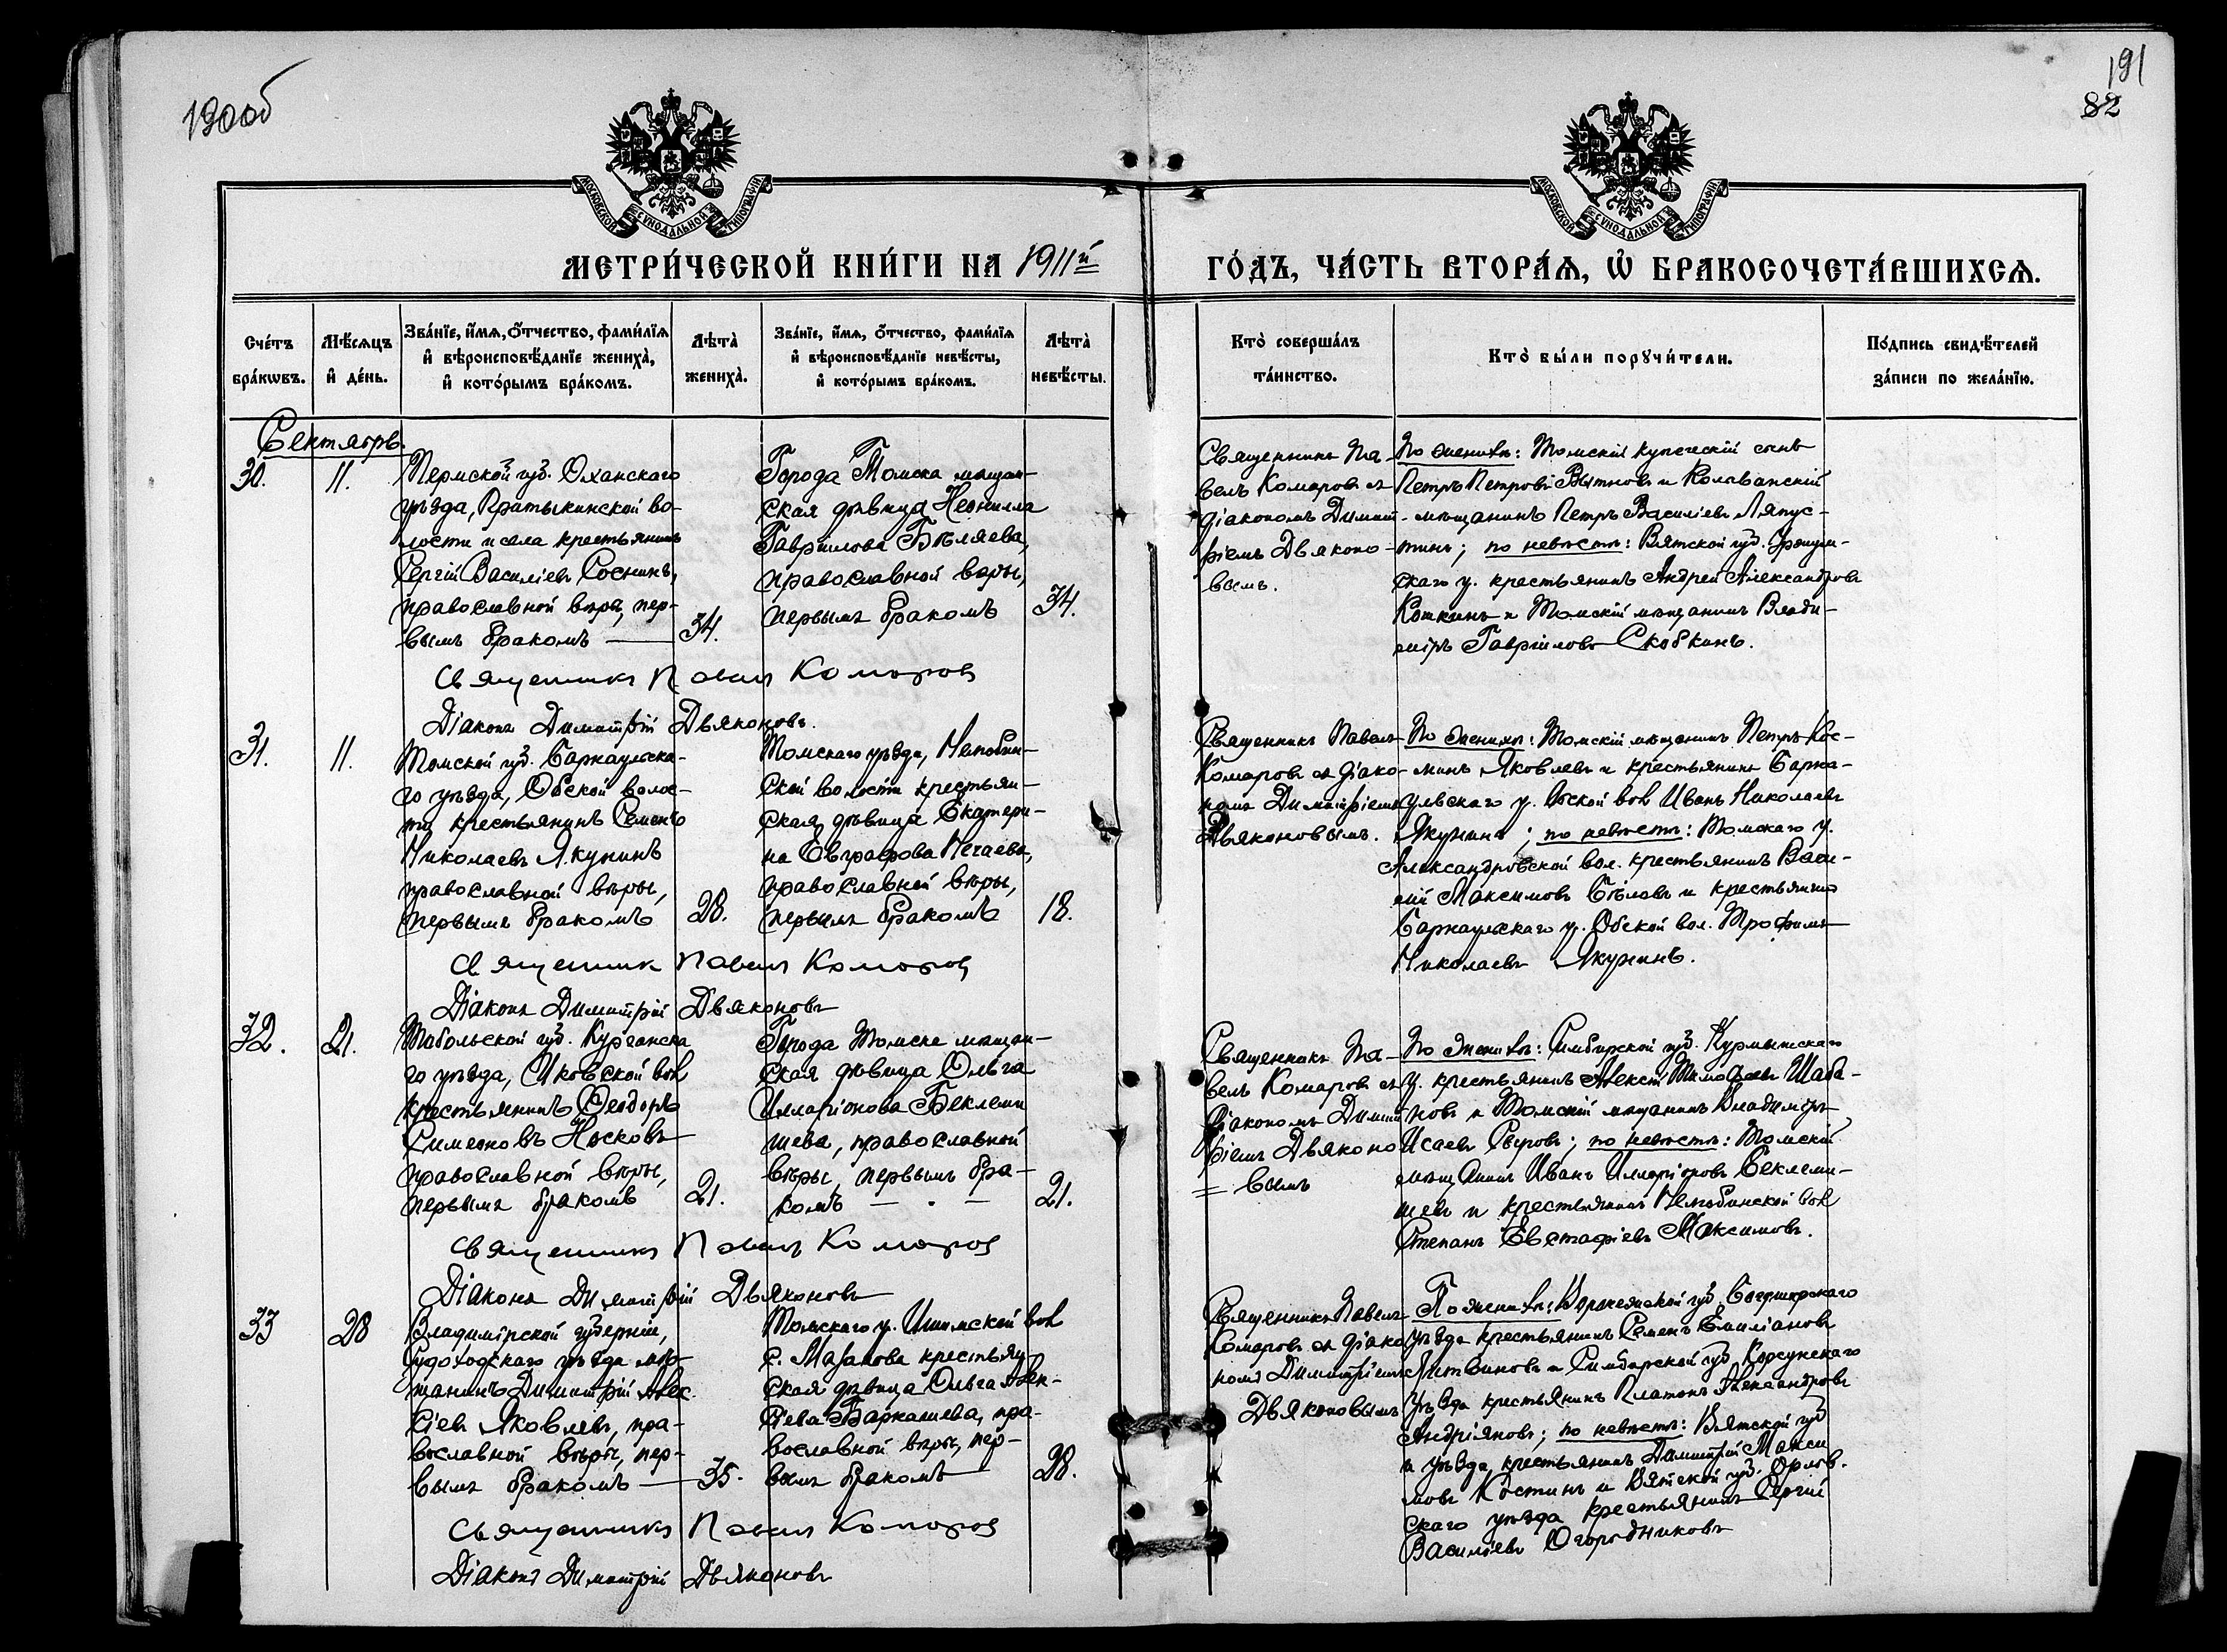 190об
191
82
МОСКОВСКОЙ СѴНОДАЛЬНОЙ ТИПОГРАФІИ
МОСКОВСКОЙ СѴНОДАЛЬНОЙ ТИПОГРАФІИ
МЕТРИ́ЧЕСКОЙ КНИ́ГИ НА 1911й
ГО́ДЪ, ЧА́СТЬ ВТОРА́Ѧ, Ѽ БРАКОСОЧЕТА́ВШИХСѦ.
Сче́тъ бра́кѡвъ.
Мѣ́сѧцъ и҆ де́нь.
Зва́нїе, и҆́мѧ, о҆́тчество, фами́лїѧ
и҆ вѣроисповѣ́данїе жениха̀,
и҆ кото́рымъ бра́комъ.
Лѣта̀ жениха̀.
Зва́нїе, и҆́мѧ, о҆́тчество, фами́лїѧ
и҆ вѣроисповѣ́данїе невѣ́сты,
и҆ кото́рымъ бра́комъ.
Лѣта̀ невѣ́сты.
Кто̀ соверша́лъ
та́инство.
Кто̀ бы́ли порꙋчи́тели.
По́дпись свидѣ́телей
за́писи по жела́нїю.
Сентябрь.
30.
11.
Пермской губ. Оханскаго
уѣзда, во-
лости и села крестьянинъ
Сергій Василіевъ Соснинъ,
православной вѣры, пер-
вымъ бракомъ
34.
Города Томска мѣщан-
ская дѣвица Неонилла
Гавріилова Бѣляева,
православной вѣры,
первымъ бракомъ
34.
Священникъ Па-
велъ Комаровъ съ
діакономъ Димит-
ріемъ Дьяконо-
вымъ.
По женихѣ: Томскій купеческій сынъ
Петръ Петровъ Вытновъ и Колыванскій
мѣщанинъ Петръ Василіевъ Ляпус-
тинъ; по невѣстѣ: Вятской губ. Уржум-
скаго у. крестьянинъ Андрей Александровъ
Кошкинъ и Томскій мѣщанинъ Влади-
міръ Гавріиловъ Скобкинъ.
Священникъ Павелъ Комаров
Діаконъ Димитрій Дьяконовъ.
31.
11.
Томской губ. Барнаульска-
го уѣзда, Обской волос-
ти крестьянинъ Семенъ
Николаевъ Якунинъ
православной вѣры,
первымъ бракомъ
28.
Томскаго уѣзда, Нелюбин-
ской волости крестьян-
ская дѣвица Екатери-
на Евграфова Нечаева,
православной вѣры,
первымъ бракомъ
18.
Священникъ Павелъ
Комаровъ съ діако-
номъ Димитріемъ
Дьяконовымъ.
По женихѣ: Томскій мѣщанинъ Петръ Кос-
минъ Яковлевъ и крестьянинъ Барна-
ульскаго у. Обской вол Иванъ Николаевъ
Якунинъ; по невѣстѣ: Томскаго у.
Александровской вол. крестьянинъ Васи-
лій Максимовъ Бѣловъ и крестьянинъ
Барнаульскаго у. Обской вол. Трофимъ
Николаевъ Якунинъ.
Священник Павелъ Комаров
Діаконъ Димитрій Дьяконовъ
32.
21.
Тобольской губ. Курганска
го уѣзда, Иковской вол
крестьянинъ Ѳеодоръ
Симеоновъ Носковъ
православной вѣры,
первымъ бракомъ
21.
Города Томска мѣщан-
ская дѣвица Ольга
Илларіонова Беклеми
шева, православной
вѣры, первымъ бра-
комъ
21.
Священникъ Па-
велъ Комаровъ съ
діакономъ Димит
ріемъ Дьяконо
= вымъ
По женихѣ: Симбирской губ. Курмышскаго
у. крестьянинъ Алексѣй Тимофѣевъ Шаба-
новъ и Томскій мѣщанинъ Владиміръ
Исаевъ Сѣровъ; по невѣстѣ: Томскій
мѣщанинъ Иванъ Илларіоновъ Беклеми-
шевъ и крестьянинъ Нелюбинской вол
Степанъ Евстафіевъ Максимовъ.
Священникъ Павелъ Комаров
Діаконъ Димитрій Дьяконовъ
33
28
Владимірской губерніи,
Судогодскаго уѣзда мѣ-
щанинъ Димитрій Алек
сіевъ Яковлевъ, пра-
вославной вѣры, пер-
вымъ бракомъ
35.
Томскаго у. Ишимской вол
с. Мазалова крестьян
ская дѣвица Ольга Алек-
сіева Баркашева, пра-
вославной вѣры, пер-
вымъ бракомъ
28.
Священникъ Павелъ
Комаровъ съ діако
номъ Димитріемъ
Дьяконовымъ
По женихѣ: Воронежской губ. Богучарскаго
уѣзда крестьянинъ Семенъ Емиліановъ
Литвиновъ и Симбирской губ Корсунскаго
уѣзда крестьянинъ Платонъ Александровъ
Андріяновъ; по невѣстѣ: Вятской губ
и уѣзда крестьянинъ Димитрій Макси
мовъ Костинъ и Вятской губ. Орлов.
скаго уѣзда крестьянинъ Сергій
Василіевъ Огородниковъ
Священникъ Павелъ Комаров
Діаконъ Димитрій Дьяконовъ